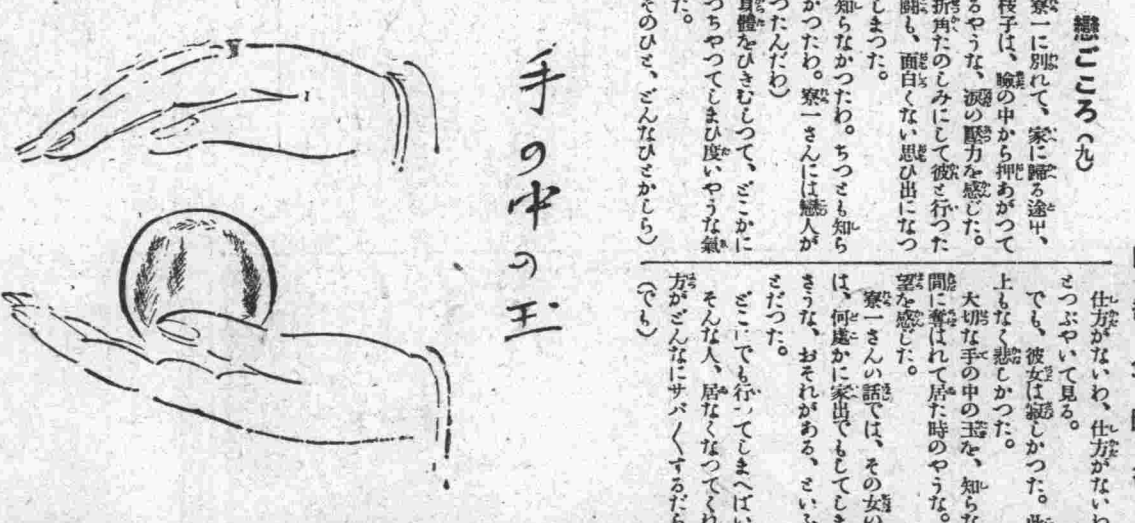 戀ごころ(九)
寮一に別れて、家に歸る途中、
枝子は、瞼の中から押あがつて
るやうな、涙の壓力を感じた。
折角たのしみにして彼と行つた
鬪も、面白くない思ひ出になつ
しまつた。
知らなかつたわ。ちつとも知ら
かつたわ。寮一さんには戀人が
つたんだわ)
身體をひきむしつて、どこかに
つちやつてしまひ度いやうな氣
た。
そのひと、どんなひとかしら)
仕方がないわ、仕方がないわ
とつぶやいて見る。
でも、彼女は寂しかつた。此
上もなく悲しかつた。
大切な手の中の玉を、知らな
間に奪はれて居た時のやうな。
望を感じた。
寮一さんの話では、その女の
は、何處かに家出でもしてしま
さうな、おそれがある、といふ
とだつた。
どこにでも行つてしまへばい
そんな人、居なくなつてくれ
方がどんなにサバ〱するだら
(でも)
手の中の玉